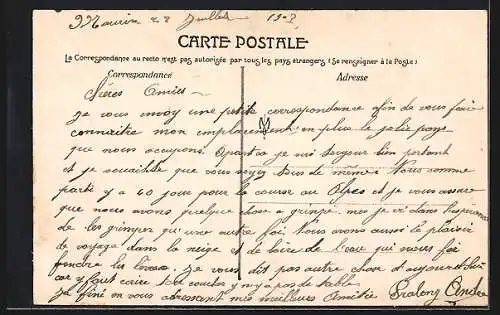 Maurin 28 Juillet 190?
CARTE POSTALE
La Correspondance au recto n'est pas autorisée par tous les pays étrangers (Se renseigner à la Poste)
Correspondance
Adresse
Amies
Je vous envoy une petite correspondance afin de vous faire
connaitre mon emplacement en plus le jolie pays
que nous occupons. A part ça je me toujour bien portant
et je souaitte que vous soyez tous de même. Nous somme
parti y a 40 jour pour la course au Alpes et je vous assure
que nous avons quelque chose a grimpé. mes je vi dans l'espérance
de les grimper qu'une autre foi. Nous avons aussi le plaisir
de voyage dans la neige et de boire de l'eau qui nous fai
fendre les lèvres. Je vous dit pas autre chose d'aujourd'hui
car y faut caire tout y n'y a pas de table.
Je fini en vous adressant mes meilleurs Amitiés Pralong André